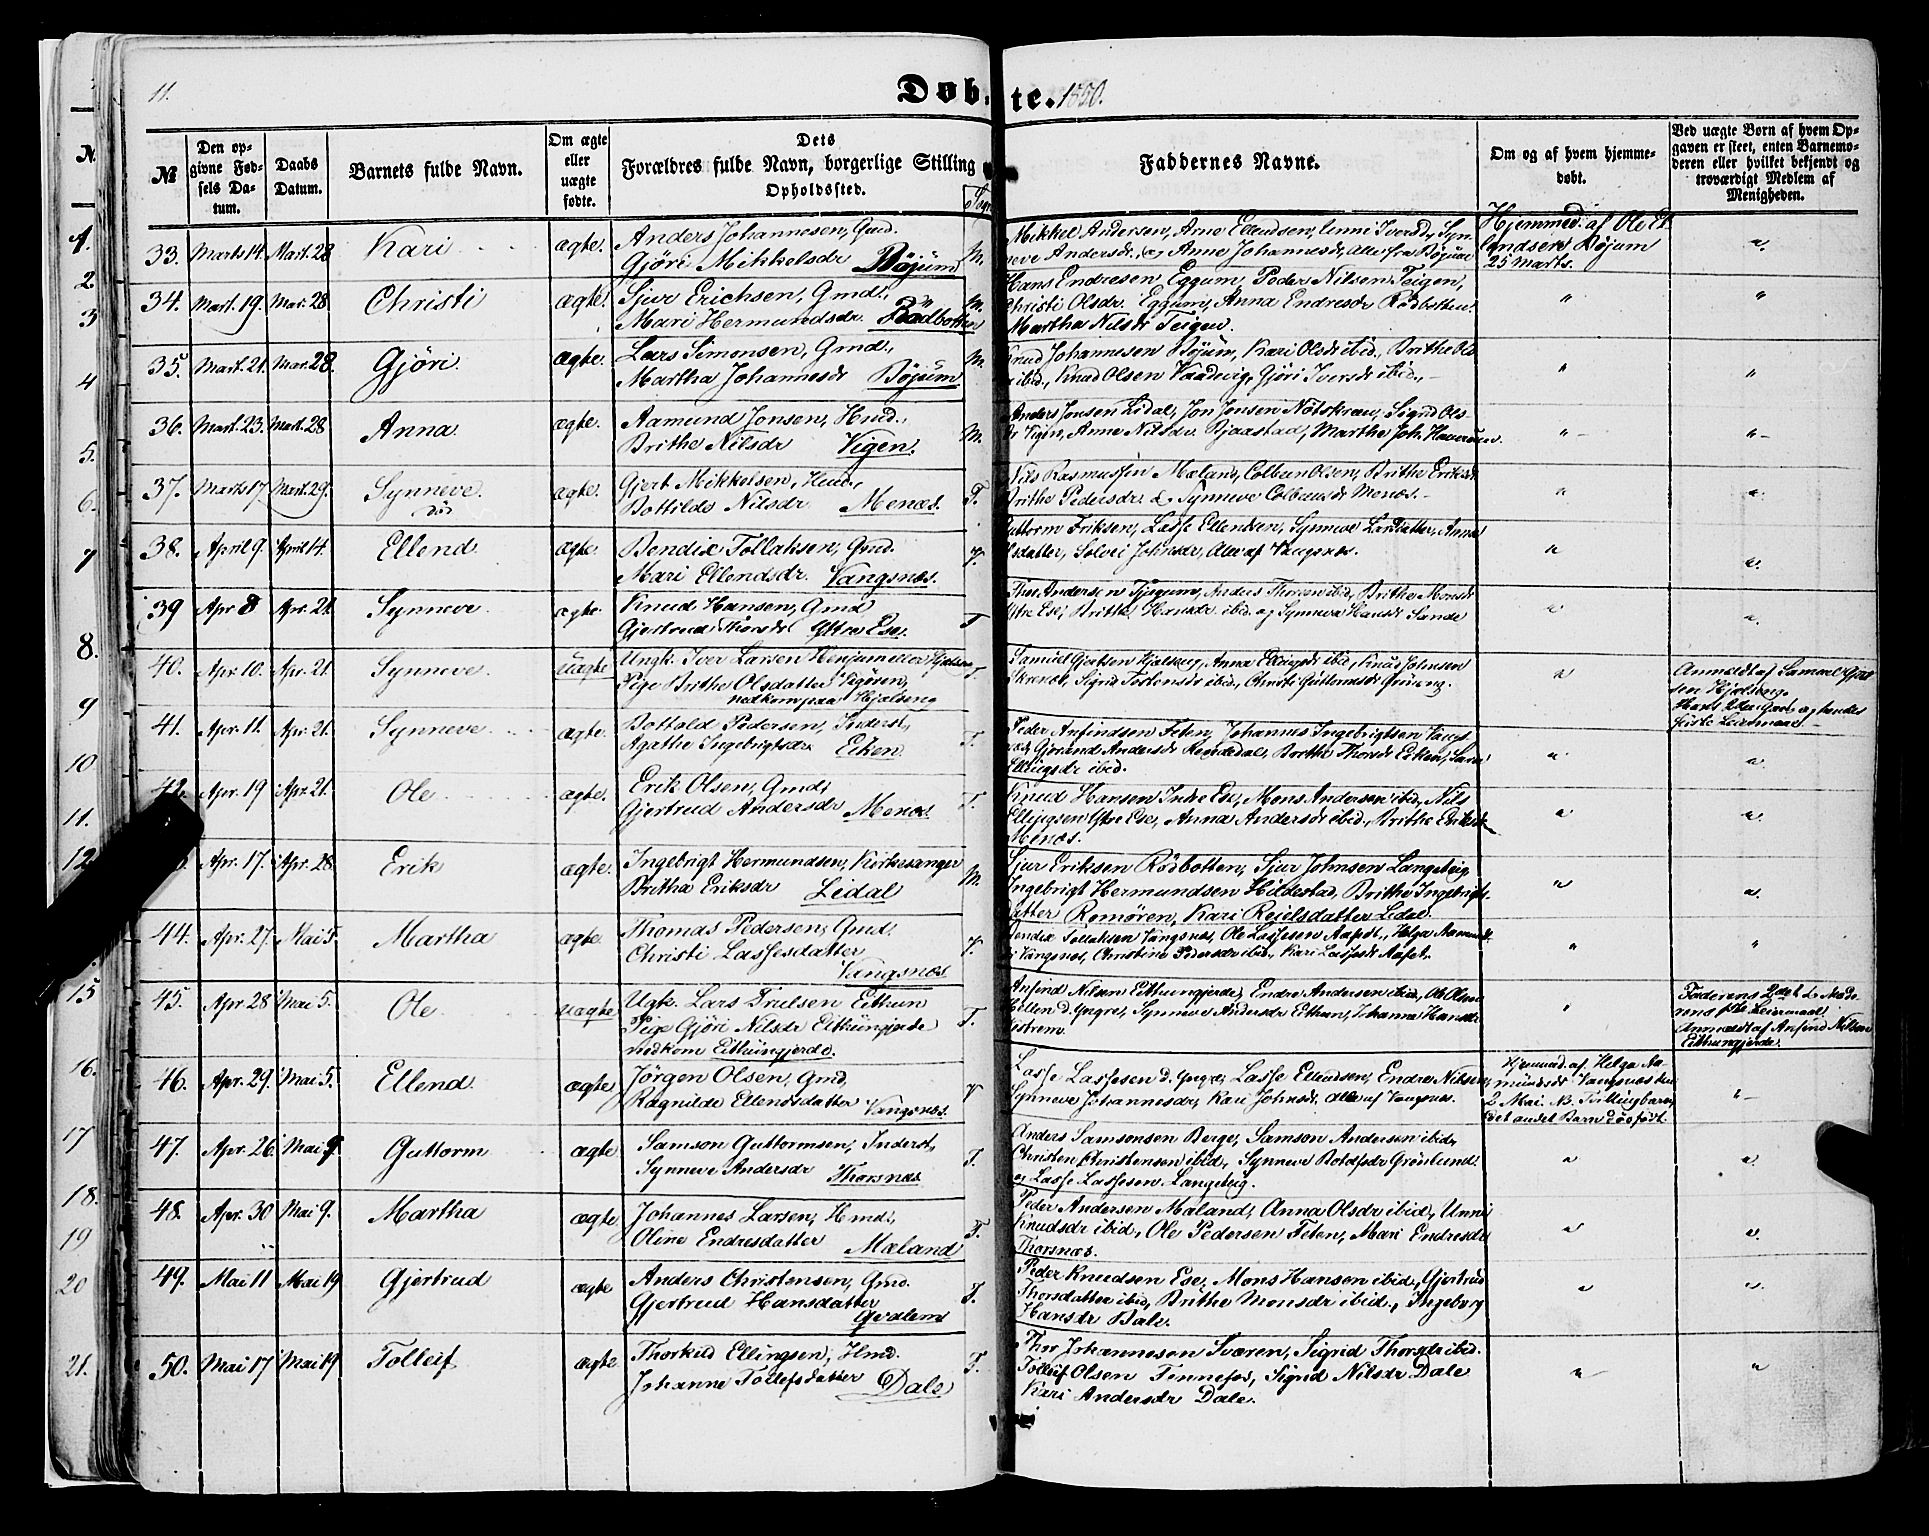 11.
Døbte. 1850.
№ | Den opgivne Fødsels Datum. | Daabs Datum. | Barnets fulde Navn. | Om ægte eller uægte fødte. | Dets Forældres fulde Navn, borgerlige Stilling Opholdssted. | Sogn | Faddernes Navne. | Om og af hvem hjemmedøbt. | Ved uægte Børn af hvem Opgaven er skeet, enten Barnemoderen eller hvilket bekjendt og troværdigt Medlem af Menigheden.
33. Marts 14. Mart. 28 Kari ægte. Anders Johannesen, Gmd. M. Mikkel Andersen, Arne Ellendsen, Syn-
Gjöri Mikkelsdr Böjum neve Andersdr, og Anne Johannesdr, alle fra Böjum
Hjemmed. af Ole El-
lendsen Böjum
25 Marts.
34. Mart. 19. Mar. 28 Christi ægte. Sjur Erichsen, Gmd., M. Hans Endresen Eggum, Peder Nilsen Teigen,
Mari Hermundsdr. Rödbotten Christi Olsdr. Eggum, Anna Endresdr Rödbotten.
Martha Nilsdr Teigen.
35. Mart. 21. Mar. 28. Gjöri. ægte. Lars Simonsen, Gmd., M. Knud Johannesen Böjum, Kari Olsdr ibid., Brithe Ols
Martha Johannesdr Böjum ibid., Knud Olsen Vaadevig, Gjöri Iversdr ibid.
36. Mart. 23. Mart. 28 Anna. ægte. Aamund Jonsen, Hmd., M. Anders Jonsen Lidal, Jon Jonsen Nötskræn, Sigrid Ols-
Brithe Nilsdr Vigen. dr Vigen, Anne Nilsdr. Bjaastad, Marthe Joh.
37. Marts 17 Mart. 29. Synneve. ægte. Gjert Mikkelsen, Hmd., T. Nils Rasmussen Mæland, Colbeen Olsen, Brithe Eriksdr
död Bottilde Nilsdr Menæs. Brithe Pedersdr. & Synneve Colbeensdr Menæs.
38. April 9. April 14. Ellend. ægte. Bendix Tollaksen, Gmd. V. Guttorm Eriksen, Lasse Ellendsen, Synneve Larsdatter, Anna
Mari Ellendsdr. Vangsnæs. datter, Solvei Johnsdr, Alle af Vangsnæs.
39 Apr 8 Apr. 21. Synneve. ægte. Knud Hansen, Gmd T Thor Andersen Tjugum, Anders Thorsen ibid, Brithe Monsdr
Gjertrud Thorsdr Yttre Ese. Ytre Ese, Brithe Hansdr ibid. og Synneva Hansdr Sande
40. Apr. 10. Apr. 21. Synneve. uægte Ungk. Iver Larsen Henjum eller T. Samuel Gjertsen Hjalseng, Anna ibid, Knud Johnsen
Pige Brithe Olsdatter Sigrid Torstensdr ibid., Christi Guttormsdr
nedkom paa Hjalseng
Anmeldt af Samuel Gjert
sen Hjalseng.
Hans 2den Gang og hendes
förste Leiermaal
41. Apr. 11. Apr. 21. Synneve ægte. Bottold Pedersen, Inderst, T. Peder Anfindsen Feten, Johannes Ingebrigtsen Vangs
Agathe Ingebrigtsdr Eiken. næs, Gjörand Andersdr Rendedal, Brithe Thorsdr Eiken,
Ellingsdr ibid.
42. Apr. 19 Apr. 21. Ole ægte. Erik Olsen, Gmd, T. Knud Hansen Indre Ese, Mons Andersen ibid, Nils
Gjertrud Andersdr Menæs. Ellingsen Ytre Ese, Anna Andersdr ibid., Brithe Eriksdr
Menæs.
Apr. 17. Apr. 28. Erik ægte. Ingebrigt Hermundsen, Kirkesanger M. Sjur Eriksen Rödbotten, Sjur Johnsen Langeteig
Britha Eriksdr Lidal Ingebrigt Hermundsen Hildestad, Brithe Ingebrigts-
datter Romören, Kari Reielsdatter Lidal.
44. Apr. 27. Mai 5. Martha ægte Thomas Pedersen, Gmd. V. Bendix Tollaksen Vangsnæs, Ole Lassesen, Helga Aamunds
Christi Lassesdatter Vangsnæs, Christine Pedersdr ibid., Kari Lassesdr
Vangsnæs
45. Apr 28 Mai 5. Ole uægte Ugk. Lars Trulsen Eithun T. Anfind Nilsen Eithungjerde, Endre Andersen ibid, Ole Olsen
Pige Gjöri Nilsdr Eithungjerde d. yngre, Synneve Andersdr Eithun, Johanna Hansdr
nedkom Eithungjerde.
Faderens 2det & Mode
rens 1ste Leiermaal
Anmeldt af Anfind Nilsen
Eithungjerde.
46. Apr. 29. Mai 5. Ellend ægte Jörgen Olsen, Gmd, V Lasse Lassesen d. yngre, Lasse Ellendsen, Endre Nilsen,
Ragnilde Ellendsdatter Vangsnæs. Synneve Johannesdr, Kari Johnsdr. Alle af Vangsnæs.
Hjemmed. af Helga Aa-
mundsdr Vangsnæs den
2 Mai. NB. Tvillingbarn,
det andet Barn dödfödt.
47. Apr. 26. Mai 9. Guttorm ægte Samson Guttormsen, Inderst, T. Anders Samsonsen Berge, Samson Andersen ibid,
Synneve Andersdr Thorsnæs Christen Christensen ibid., Synneve Botolfsdr Grönlund
og Lasse Lassesen Langeteig.
48. Apr. 30 Mai 9. Martha ægte Johannes Larsen, Hmd., T. Peder Andersen Mæland, Anna Olsdr ibid, Unni
Oline Endresdatter Mæland Knudsdr ibid, Ole Pedersen Feten, Mari Endresdr
Thorsnæs.
49. Mai 11 Mai 19 Gjertrud ægte Anders Christensen, Gmd. T. Peder Knudsen Ese, Mons Hansen ibid, Gjertrud
Gjertrud Hansdatter Thorsdatter ibid, Brithe Monsdr ibid., Ingeborg
Qvalem Hansdr Dale.
50. Mai 17 Mai 19 Tolleif ægte Thorkild Ellingsen, Hmd. T. Thor Johannesen Sværen, Sigrid Thorsdr ibid.
Johanne Tollefsdatter Dale Tolleif Olsen Finnefos, Sigrid Nilsdr Dale
Kari Andersdr Dale.